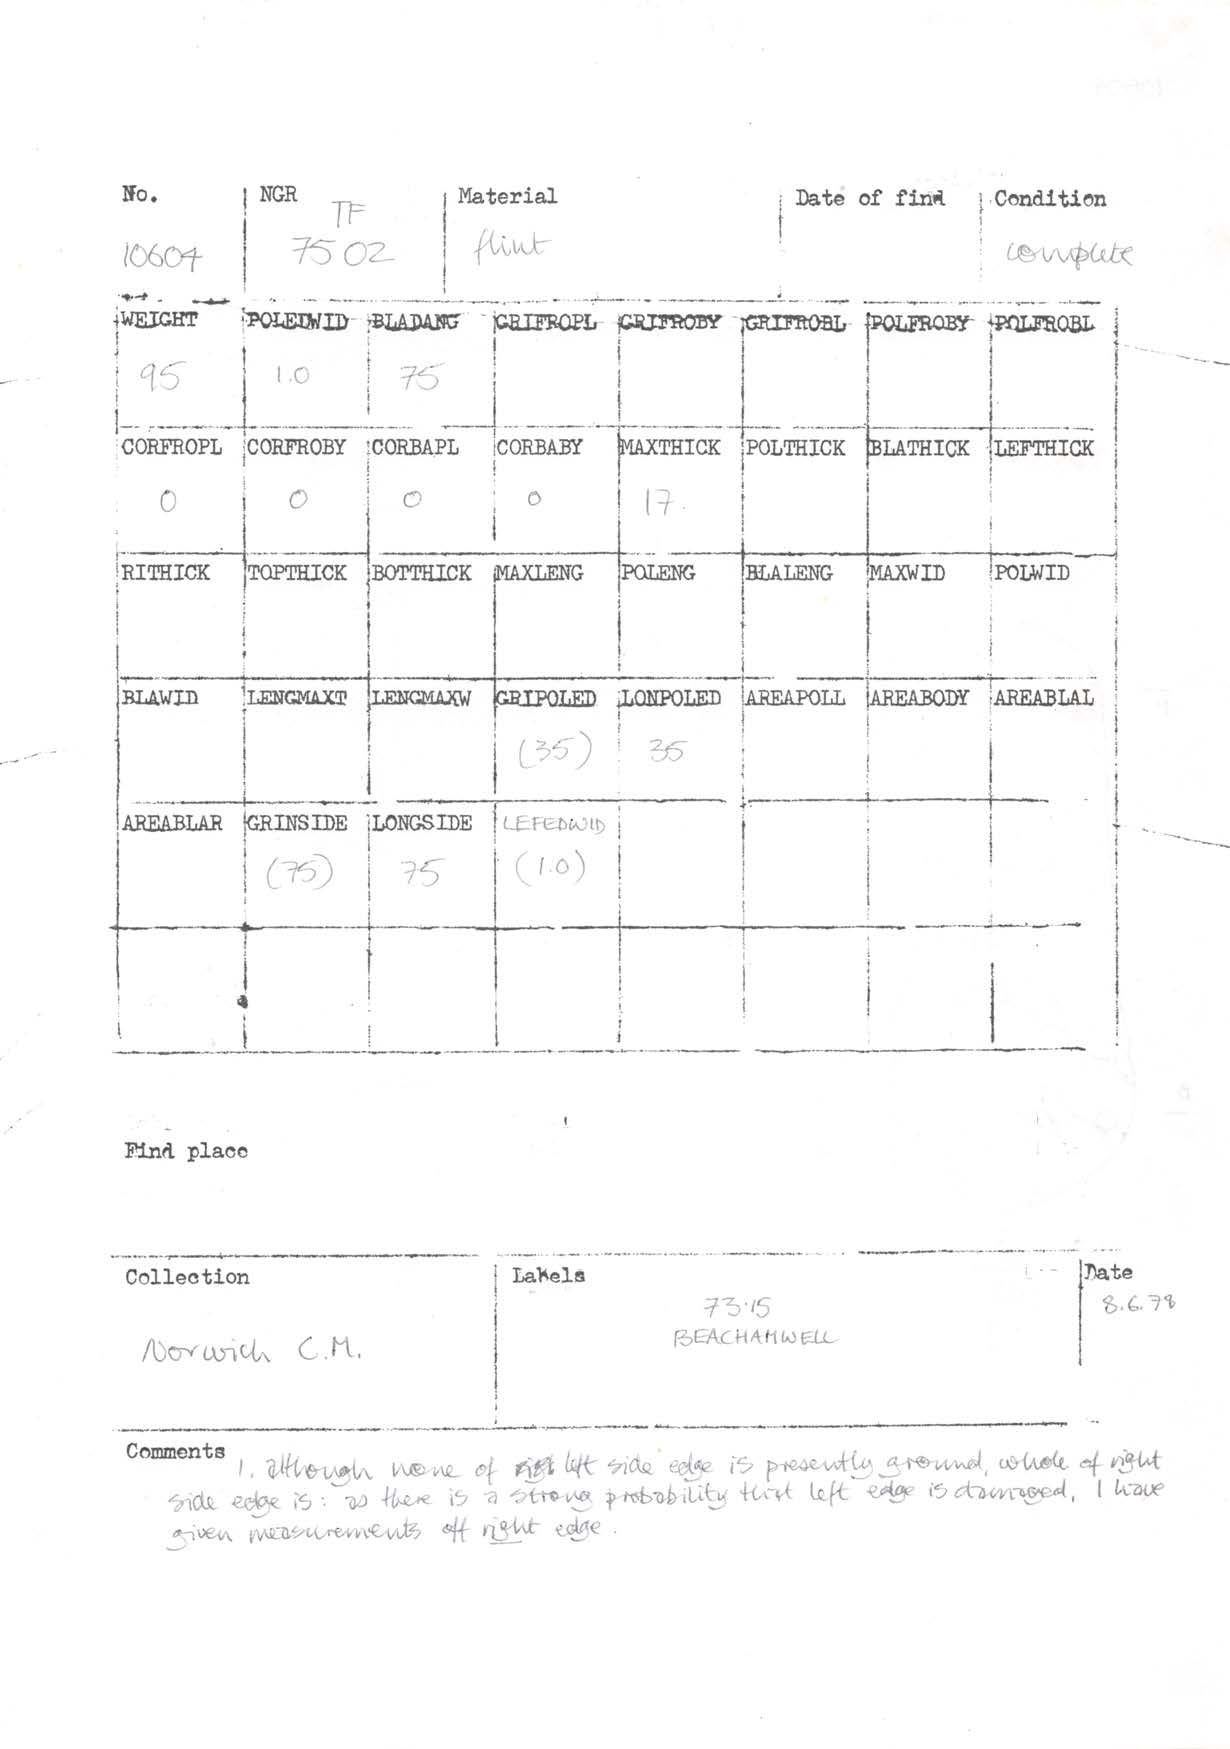 No. NGR Material Date of find Condition
TF
10604 7502 flint complete
WEIGHT POLEDWID BLADANG GRIFROPL GRIFROBY GRIFROBL POLFROBY POLFROBL
95 1.0 75
CORFROPL CORFROBY CORBAPL CORBABY MAXTHICK POLTHICK BLATHICK LEFTHICK
0 0 0 0 17.
RITHICK TOPTHICK BOTTHICK MAXLENG POLENG BLALENG MAXWID POLWID
BLAWID LENGMAXT LENGMAXW GRIPOLED LONPOLED AREAPOLL AREABODY AREABLAL
(35) 35
AREABLAR GRINSIDE LONGSIDE LEFEDWID
(75) 75 (1.0)
Find place
Collection Labels Date
73.15 8.6.78
BEACHAMWELL
Norwich C.M.
Comments
1. although none of left side edge is presently ground, whole of right
side edge is: as there is a strong probability that left edge is damaged, I have
given measurements off right edge.